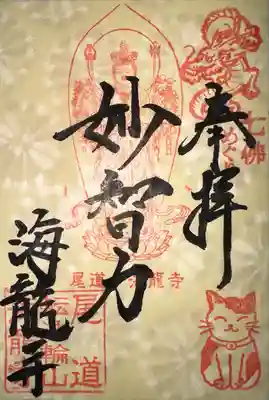 奉拝
七佛
めぐり
妙智力
尾道 海龍寺
海龍寺
尾道